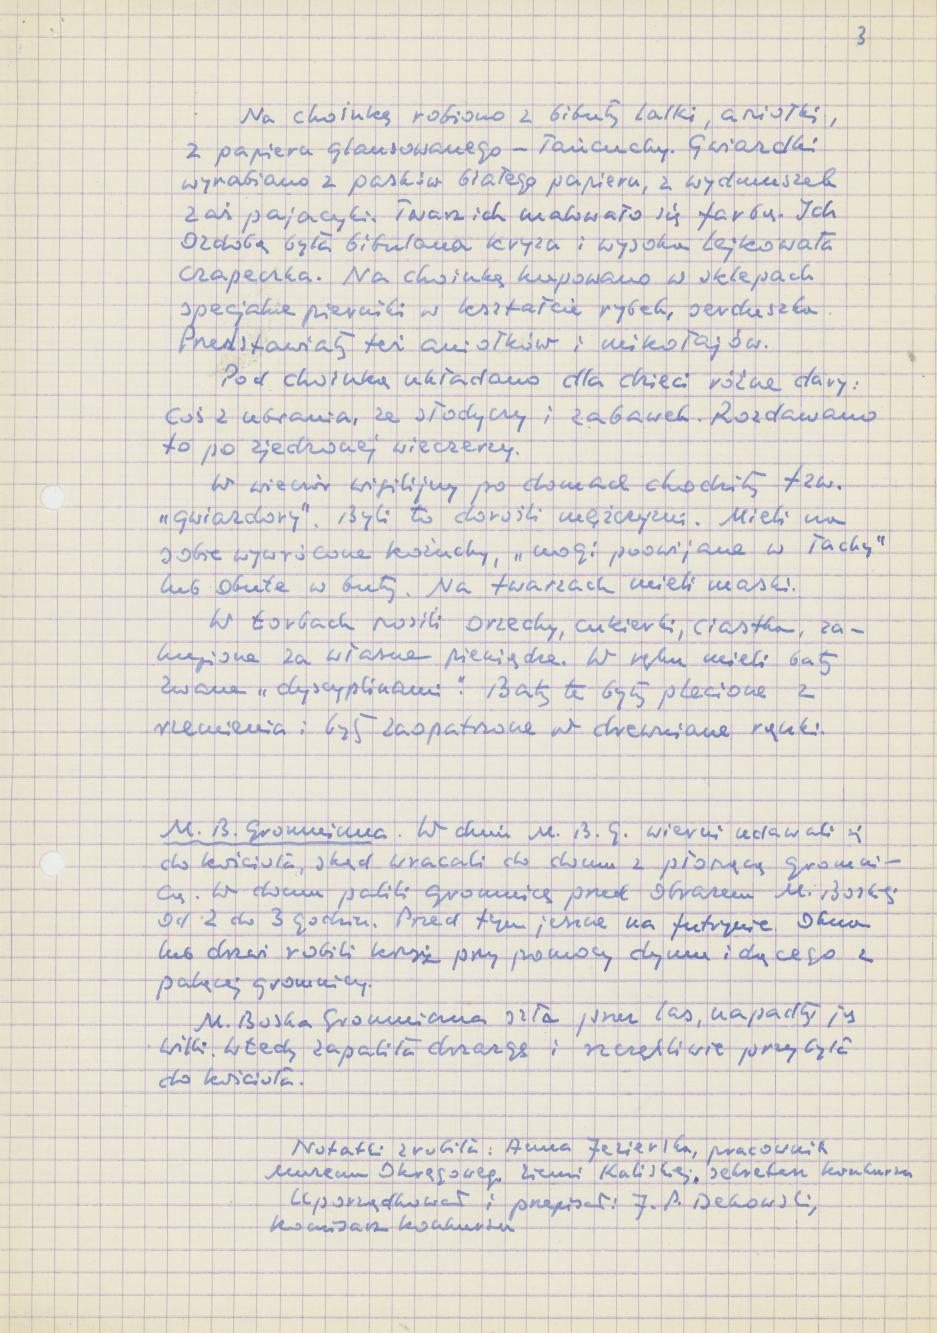 3
Na choinkę robiono z bibuły lalki, aniołki,
z papieru glansowanego – łańcuchy. Gwiazdki
wyrabiano z pasków białego papieru, z wydmuszek
zaś pajacyki. Twarz ich malowało się farbą. Ich
ozdobą była bibulana kryza i wysoka lejkowata
czapeczka. Na choinkę kupowano w sklepach
specjalne pierniki w kształcie rybek, serduszka.
Przedstawiały też aniołków i mikołajów.
Pod choinką układano dla dzieci różne dary:
coś z ubrania, ze słodyczy i zabawek. Rozdawano
to po zjedzonej wieczerzy.
W wieczór wigilijny po domach chodziły tzw.
„gwiazdory". Byli to dorośli mężczyźni. Mieli na
sobie wywrócone kożuchy, „nogi poowijane w łachy"
lub obute w buty. Na twarzach mieli maski.
W torbach nosili orzechy, cukierki, ciastka, za-
kupione za własne pieniądze. W ręku mieli baty
zwane „dyscyplinami". Baty te były plecione z
rzemienia i były zaopatrzone w drewniane rączki.
M. B. Gromniczna. W dniu M. B. G. wierni udawali się
do kościoła, skąd wracali do domu z płonącą gromni-
cą. W domu palili gromnicę przed obrazem M. Boskiej
od 2 do 3 godzin. Przed tym jeszcze na futrynie okna
lub drzwi robili krzyż przy pomocy dymu idącego z
palącej gromnicy.
M. Boska Gromniczna szła przez las, napadły ją
wilki. Wtedy zapaliła drzazgę i szczęśliwie przybyła
do kościoła.
Notatki zrobiła: Anna Jezierska, pracownik
Muzeum Okręgowego Ziemi Kaliskiej, sekretarz konkursu
Uporządkował i przepisał: J. P. Dekowski,
komisarz konkursu